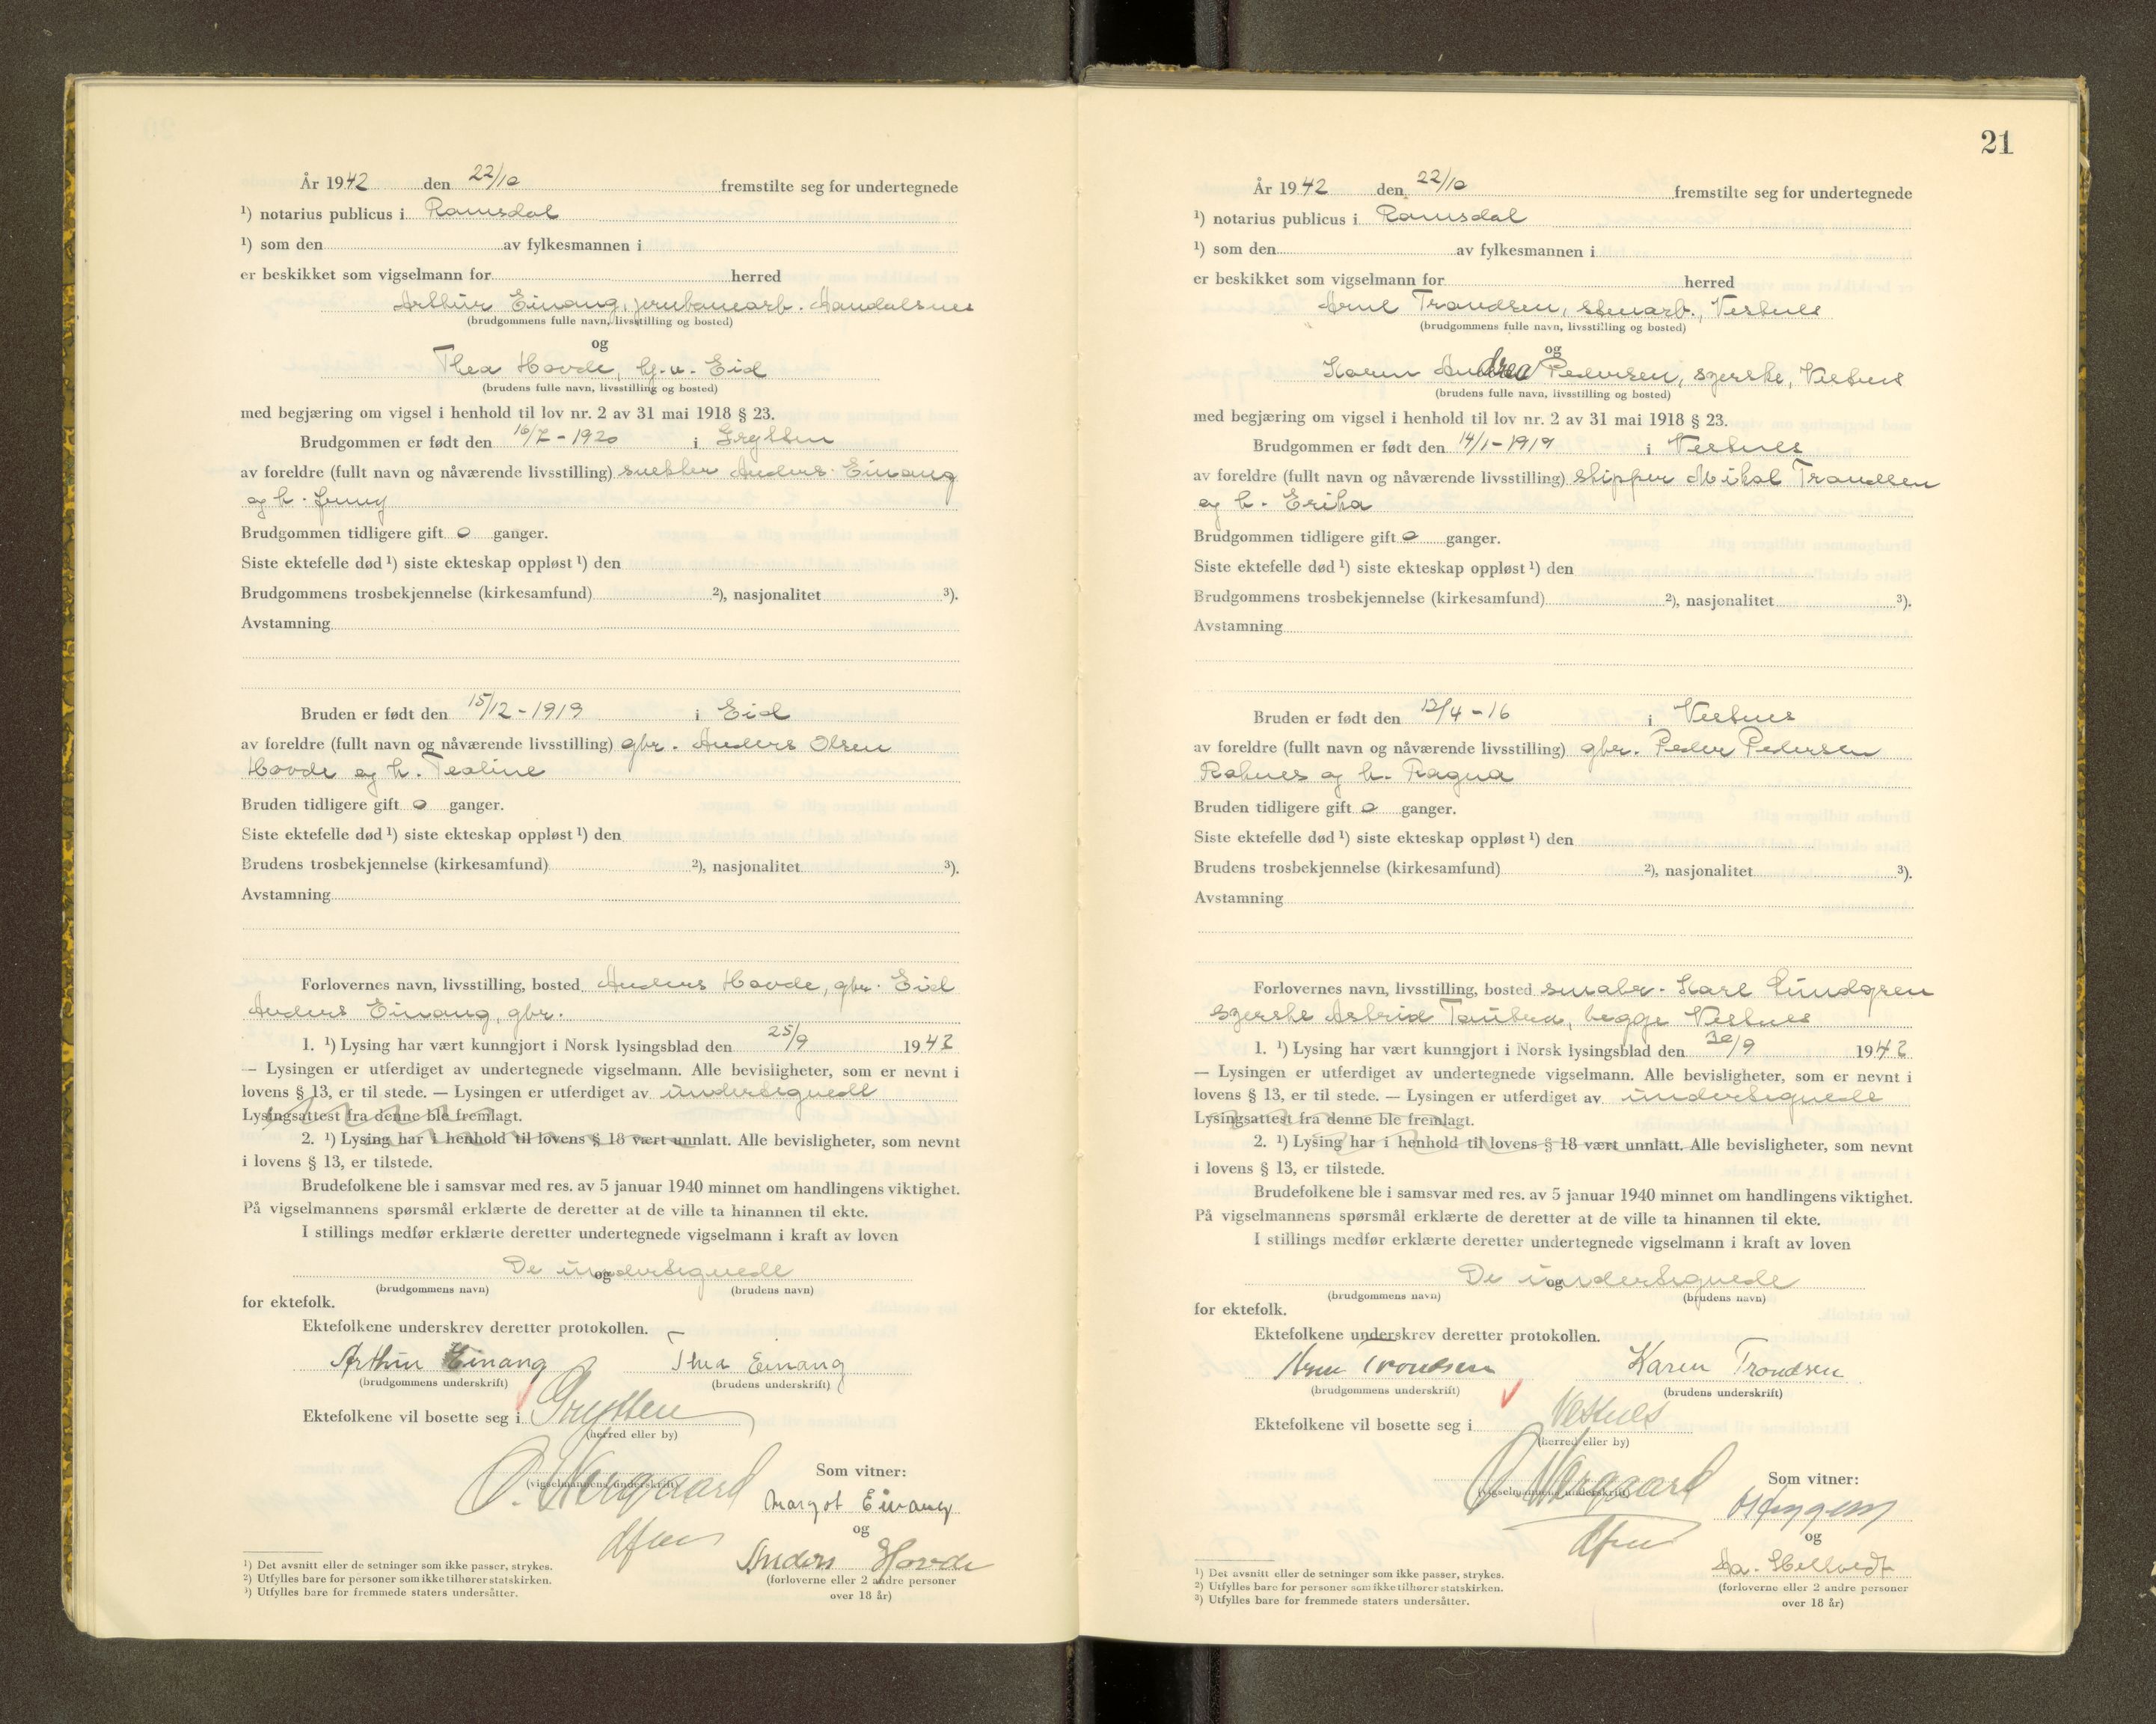 År 1942 den 22/10 fremstilte seg for undertegnede
¹) notarius publicus i Romsdal
¹) som den av fylkesmannen i
er beskikket som vigselmann for herred
Arthur Einang, jernbanearb. Aandalsnes
(brudgommens fulle navn, livsstilling og bosted)
og
Thea Hovde, hj.v. Eid
(brudens fulle navn, livsstilling og bosted)
med begjæring om vigsel i henhold til lov nr. 2 av 31 mai 1918 § 23.
Brudgommen er født den 16/7 - 1920 i Grytten
av foreldre (fullt navn og nåværende livsstilling) snekker Anders Einang
og h. Jenny
Brudgommen tidligere gift 0 ganger.
Siste ektefelle død ¹) siste ekteskap oppløst ¹) den
Brudgommens trosbekjennelse (kirkesamfund) ²), nasjonalitet ³).
Avstamning
Bruden er født den 15/12 - 1919 i Eid
av foreldre (fullt navn og nåværende livsstilling) gbr. Anders Olsen
Hovde og h. Tealine
Bruden tidligere gift 0 ganger.
Siste ektefelle død ¹) siste ekteskap oppløst ¹) den
Brudens trosbekjennelse (kirkesamfund) ²), nasjonalitet ³).
Avstamning
Forlovernes navn, livsstilling, bosted Anders Hovde, gbr. Eid
Anders Einang, gbr.
1. ¹) Lysing har vært kunngjort i Norsk lysingsblad den 25/9 1942
— Lysingen er utferdiget av undertegnede vigselmann. Alle bevisligheter, som er nevnt i
lovens § 13, er til stede. — Lysingen er utferdiget av undertegnede
Lysingsattest fra denne ble fremlagt.
2. ¹) Lysing har i henhold til lovens § 18 vært unnlatt. Alle bevisligheter, som nevnt
i lovens § 13, er tilstede.
Brudefolkene ble i samsvar med res. av 5 januar 1940 minnet om handlingens viktighet.
På vigselmannens spørsmål erklærte de deretter at de ville ta hinannen til ekte.
I stillings medfør erklærte deretter undertegnede vigselmann i kraft av loven
De undertegnede
og
(brudgommens navn) (brudens navn)
for ektefolk.
Ektefolkene underskrev deretter protokollen.
Arthur Einang Thea Einang
(brudgommens underskrift) (brudens underskrift)
Ektefolkene vil bosette seg i Grytten
(herred eller by)
Som vitner:
O. Nergaard
(vigselmannens underskrift)
Margot Einang
og
Anders Hovde
(forloverne eller 2 andre personer
over 18 år)
¹) Det avsnitt eller de setninger som ikke passer, strykes.
²) Utfylles bare for personer som ikke tilhører statskirken.
³) Utfylles bare for fremmede staters undersåtter.
21
År 1942 den 22/10 fremstilte seg for undertegnede
¹) notarius publicus i Romsdal
¹) som den av fylkesmannen i
er beskikket som vigselmann for herred
Arne Trondsen, stenarb., Vestnes
(brudgommens fulle navn, livsstilling og bosted)
og
Karen Andrea Pedersen, syerske, Vestnes
(brudens fulle navn, livsstilling og bosted)
med begjæring om vigsel i henhold til lov nr. 2 av 31 mai 1918 § 23.
Brudgommen er født den 14/1 - 1919 i Vestnes
av foreldre (fullt navn og nåværende livsstilling) skipper Mikal Trondsen
og h. Erika
Brudgommen tidligere gift 0 ganger.
Siste ektefelle død ¹) siste ekteskap oppløst ¹) den
Brudgommens trosbekjennelse (kirkesamfund) ²), nasjonalitet ³).
Avstamning
Bruden er født den 12/4 - 16 i Vestnes
av foreldre (fullt navn og nåværende livsstilling) gbr. Peder Pedersen
Rahnes og h. Ragna
Bruden tidligere gift 0 ganger.
Siste ektefelle død ¹) siste ekteskap oppløst ¹) den
Brudens trosbekjennelse (kirkesamfund) ²), nasjonalitet ³).
Avstamning
Forlovernes navn, livsstilling, bosted smabr. Karl Lindgren
syerske Astrid Tautra, begge Vestnes
1. ¹) Lysing har vært kunngjort i Norsk lysingsblad den 30/9 1942
— Lysingen er utferdiget av undertegnede vigselmann. Alle bevisligheter, som er nevnt i
lovens § 13, er til stede. — Lysingen er utferdiget av undertegnede
Lysingsattest fra denne ble fremlagt.
2. ¹) Lysing har i henhold til lovens § 18 vært unnlatt. Alle bevisligheter, som nevnt
i lovens § 13, er tilstede.
Brudefolkene ble i samsvar med res. av 5 januar 1940 minnet om handlingens viktighet.
På vigselmannens spørsmål erklærte de deretter at de ville ta hinannen til ekte.
I stillings medfør erklærte deretter undertegnede vigselmann i kraft av loven
De undertegnede
og
(brudgommens navn) (brudens navn)
for ektefolk.
Ektefolkene underskrev deretter protokollen.
Arne Trondsen Karen Trondsen
(brudgommens underskrift) (brudens underskrift)
Ektefolkene vil bosette seg i Vestnes
(herred eller by)
Som vitner:
O. Nergaard
(vigselmannens underskrift)
og
(forloverne eller 2 andre personer
over 18 år)
¹) Det avsnitt eller de setninger som ikke passer, strykes.
²) Utfylles bare for personer som ikke tilhører statskirken.
³) Utfylles bare for fremmede staters undersåtter.